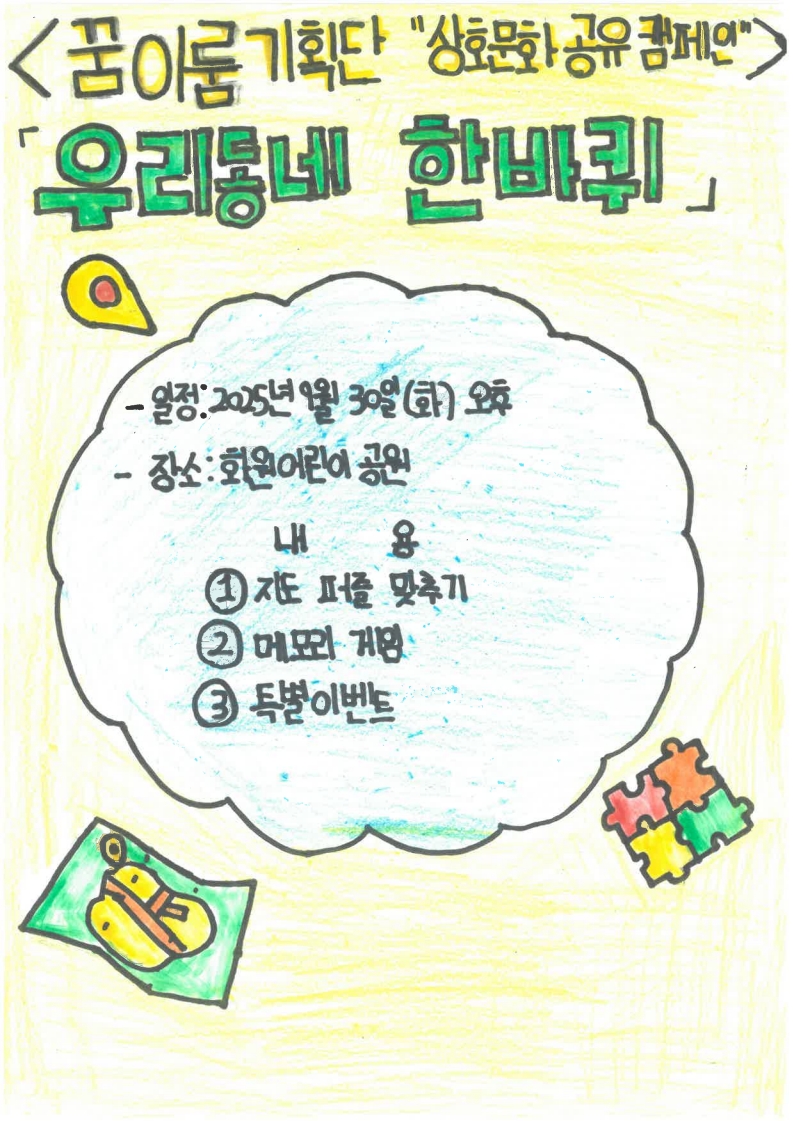 <꿈이룸 기획단 "상호문화 공유 캠페인">
「우리동네 한바퀴」
- 일정:2025년 9월 30일(화) 오후
- 장소:화원어린이 공원
내 용
① 지도 퍼즐 맞추기
② 메모리 게임
③ 특별이벤트